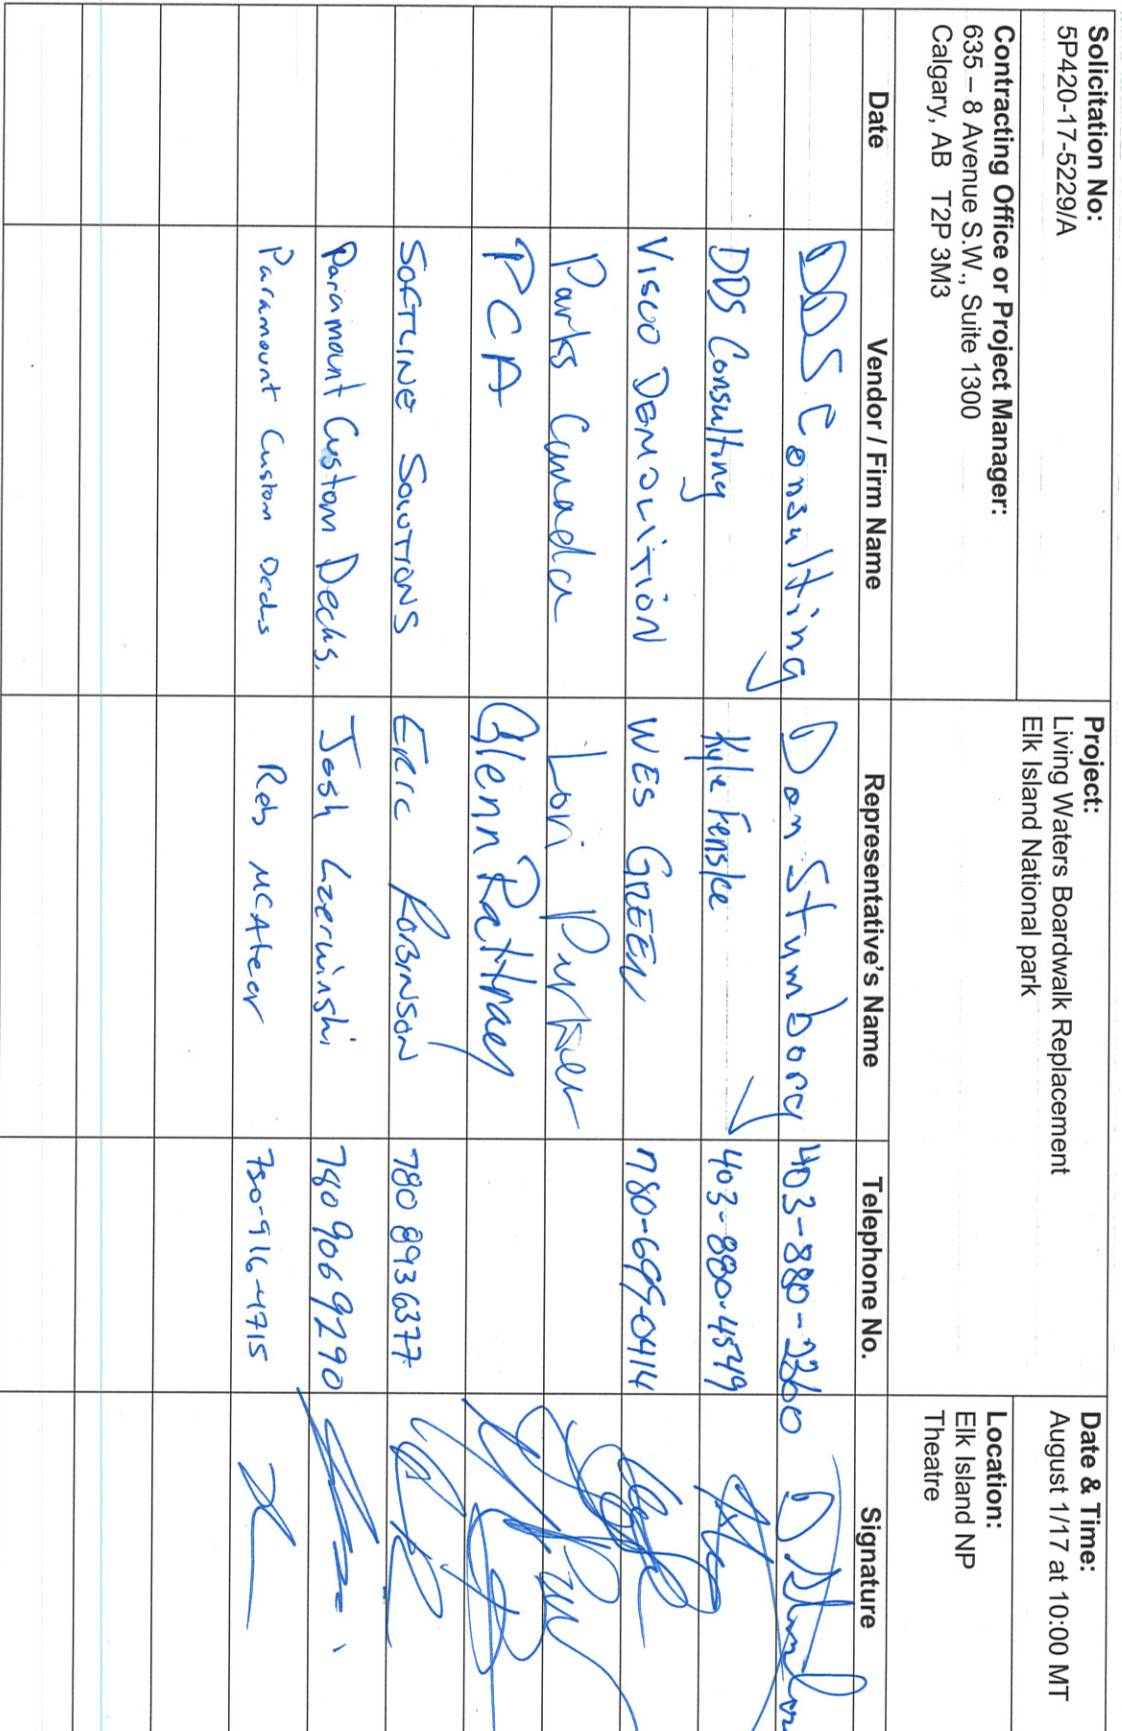 Solicitation No:
5P420-17-5229/A
Project:
Living Waters Boardwalk Replacement
Elk Island National park
Date & Time:
August 1/17 at 10:00 MT
Contracting Office or Project Manager:
635 – 8 Avenue S.W., Suite 1300
Calgary, AB T2P 3M3
Location:
Elk Island NP
Theatre
Date Vendor / Firm Name Representative's Name Telephone No. Signature
DDS Consulting Dan Stymborg 403-880-2260
DDS Consulting Kyle Fenske 403-880-4549
VISCO DEMOLITION WES GREEN 780-699-0414
Parks Canada Lori
PCA Glenn Rattray
SOFTLINE SOLUTIONS ERIC ROBINSON 780 893 6377
Paramount Custom Decks. Josh 780 906 9290
Paramount Custom Decks Rob McAteer 780-916-4715